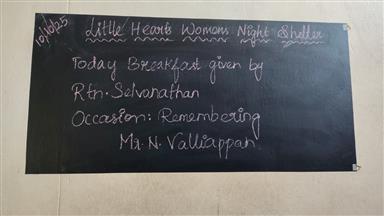 10/10/25
Little Hearts Womens Night Shelter
Today Breakfast given by
Rtn. Selvanathan
Occasion: Remembering
Mr. N. Valliappan